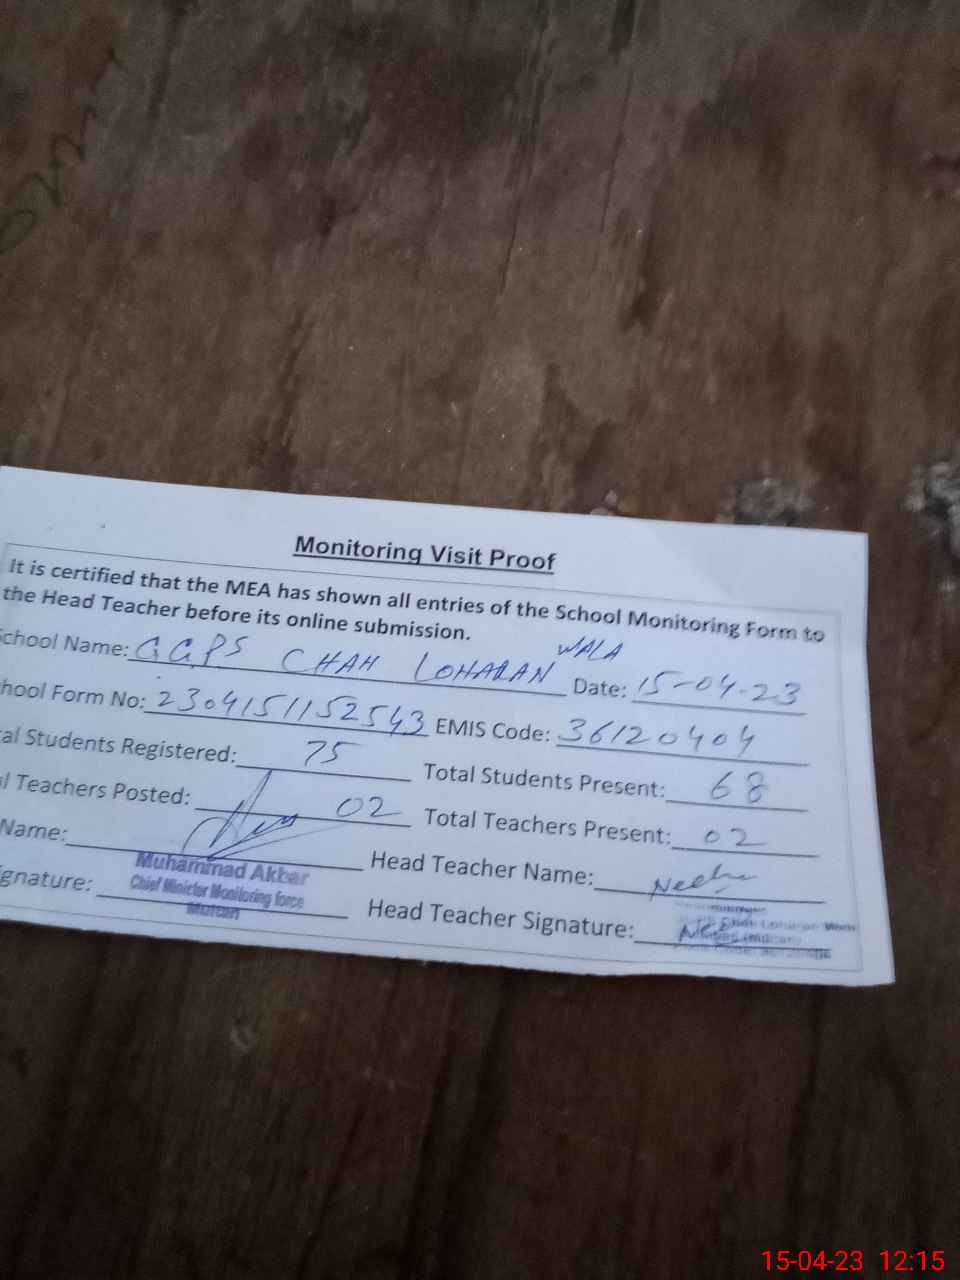 Monitoring Visit Proof
It is certified that the MEA has shown all entries of the School Monitoring Form to
the Head Teacher before its online submission.
chool Name: GGPS CHAH LOHARAN WALA Date: 15-04-23
hool Form No: 2304151152543 EMIS Code: 36120404
al Students Registered: 75 Total Students Present: 68
l Teachers Posted: 02 Total Teachers Present: 02
Name: Head Teacher Name:
Muhammad Akbar
Chief Minister Monitoring force
Multan
gnature: Head Teacher Signature:
15-04-23 12:15